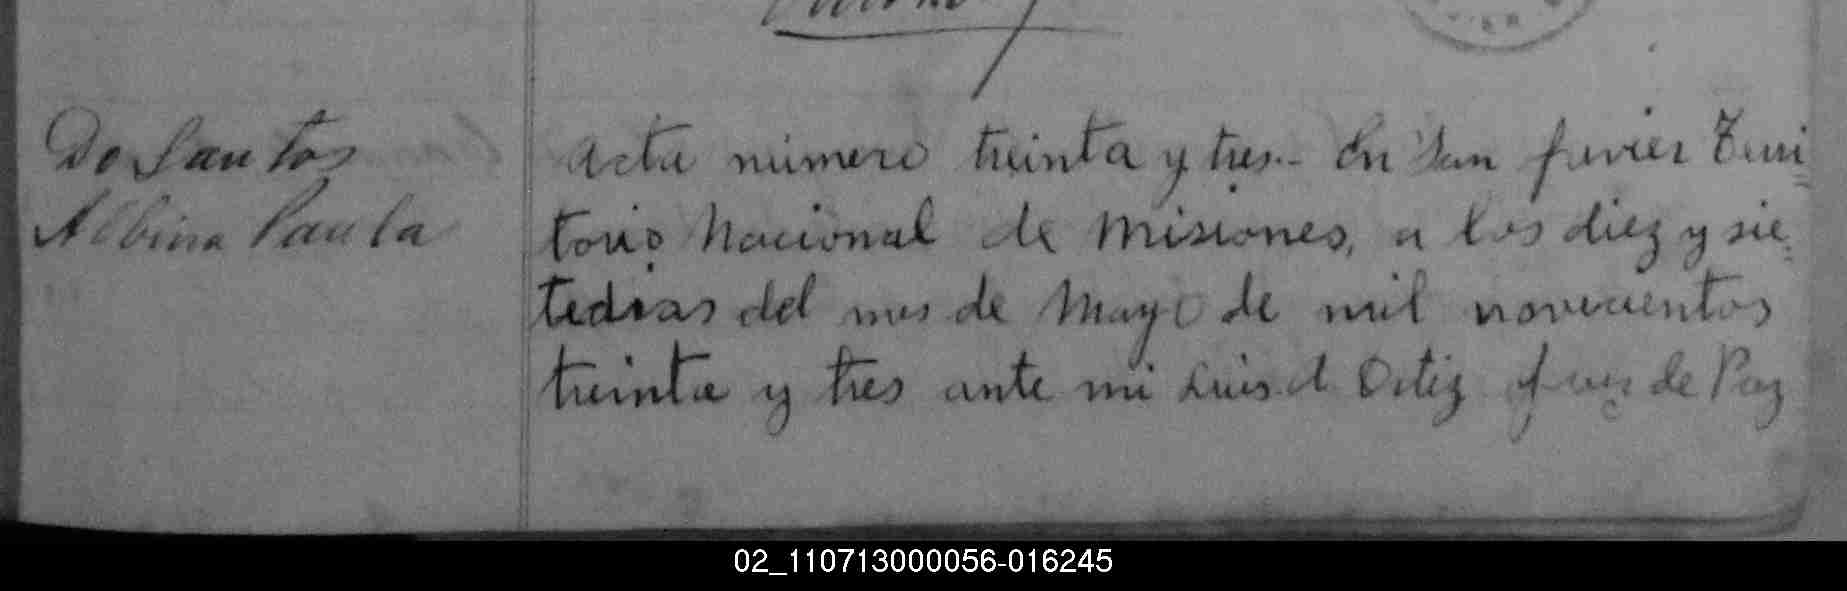 Do Santos
Albina Paula
Acta número treinta y tres.- En San Javier Terri
torio Nacional de Misiones, a los diez y sie
te dias del mes de Mayo de mil novecientos
treinta y tres ante mi Luis A Ortiz Juez de Paz
02_110713000056-016245